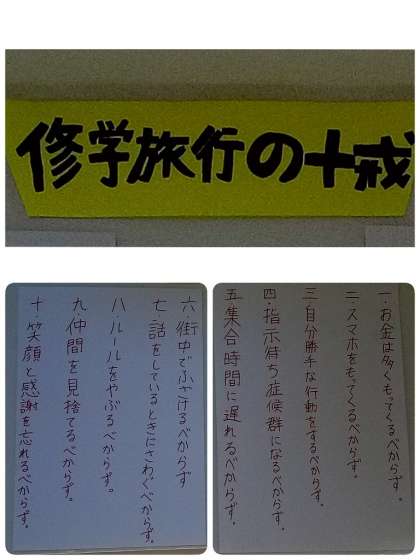 修学旅行の十戒
一.お金は多くもってくるべからず。
二.スマホをもってくるべからず。
三.自分勝手な行動をするべからず。
四.指示待ち症候群になるべからず。
五.集合時間に遅れるべからず。
六.街中でふざけるべからず
七.話をしているときにさわぐべからず。
八.ルールをやぶるべからず。
九.仲間を見捨てるべからず。
十.笑顔と感謝を忘れるべからず。